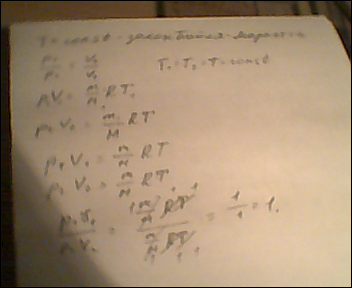 T = const - закон Бойля-Мариотта
p₁/p₂ = V₂/V₁ T₁ = T₂ = T = const
pV = m/M RT
p₁V₁ = m/M RT
p₁V₁ = m/M RT
p₂V₂ = m/M RT
p₁V₁/p₂V₂ = m/M RT / m/M RT = 1/1 = 1.